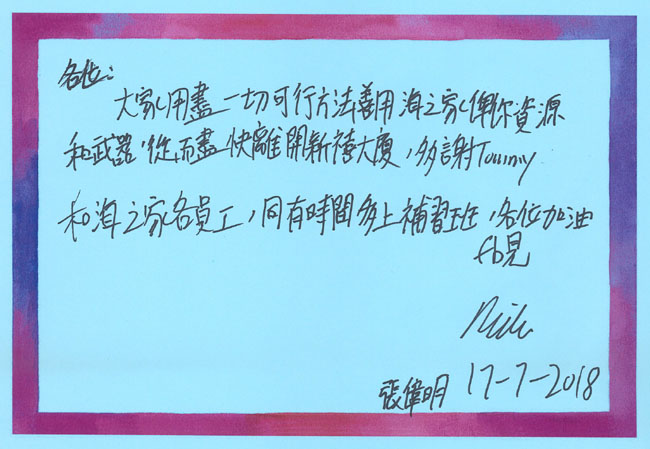 各位：
大家用盡一切可行方法善用海之家俾你資源
和武器，從而盡快離開新禧大廈，多謝Tommy
和海之家各員工，同有時間多上補習班，各位加油
fb見
張偉明 17-7-2018